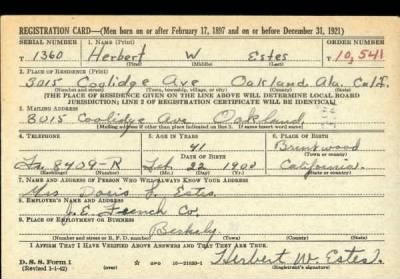 REGISTRATION CARD—(Men born on or after February 17, 1897 and on or before December 31, 1921)
SERIAL NUMBER 1. NAME (Print) ORDER NUMBER
T 1360 Herbert W Estes T 10,541
(First) (Middle) (Last)
2. PLACE OF RESIDENCE (Print)
3015 Coolidge Ave Oakland Ala. Calif.
(Number and street) (Town, township, village, or city) (County) (State)
[THE PLACE OF RESIDENCE GIVEN ON THE LINE ABOVE WILL DETERMINE LOCAL BOARD
JURISDICTION; LINE 2 OF REGISTRATION CERTIFICATE WILL BE IDENTICAL]
3. MAILING ADDRESS
3015 Coolidge Ave Oakland
[Mailing address if other than place indicated on line 2. If same insert word same]
4. TELEPHONE 5. AGE IN YEARS 6. PLACE OF BIRTH
41 Brentwood
DATE OF BIRTH (Town or county)
8409-R Feb 22 1900 California
(Exchange) (Number) (Mo.) (Day) (Yr.) (State or country)
7. NAME AND ADDRESS OF PERSON WHO WILL ALWAYS KNOW YOUR ADDRESS
Mrs Doris L. Estes
8. EMPLOYER'S NAME AND ADDRESS
J. E. French Co.
9. PLACE OF EMPLOYMENT OR BUSINESS
(Number and street or R. F. D. number) (Town) (County) (State)
I AFFIRM THAT I HAVE VERIFIED ABOVE ANSWERS AND THAT THEY ARE TRUE.
D. S. S. Form 1
(Revised 1-1-42) GPO 16-21630-1 Herbert W. Estes
(Registrant's signature)